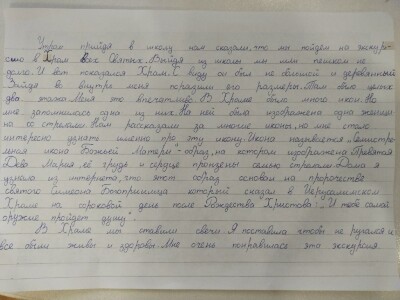 Утром прийдя в школу нам сказали, что мы пойдём на экскур-
сию в Храм Всех Святых. Выйдя из школы мы шли пешком не
долго. И вот показался Храм. С виду он был не большой и деревянный.
Зайдя во внутрь меня поразили его размеры. Там было целых
два этажа. Меня это впечатлило. В Храме было много икон. Но
мне запомнилась одна из них. На ней была изображена одна женщина
но со стрелами. Нам рассказали про многие иконы, но мне стало
интересно узнать именно про эту икону. Икона называется "Семистре-
льная икона Божьей Матери" - образ, на котором изображена Пресвятая
Дева Мария, её грудь и сердце пронзены семью стрелами. Дома я
узнала из интернета, что этот образ основан на пророчестве
святого Симеона Богоприимца который сказал в Иерусалимском
Храме на сороковой день после Рождества Христова: "И тебе самой
оружие пройдёт душу".
В Храме мы ставили свечи. Я поставила чтобы не ругался и
все были живы и здоровы. Мне очень понравилась эта экскурсия.